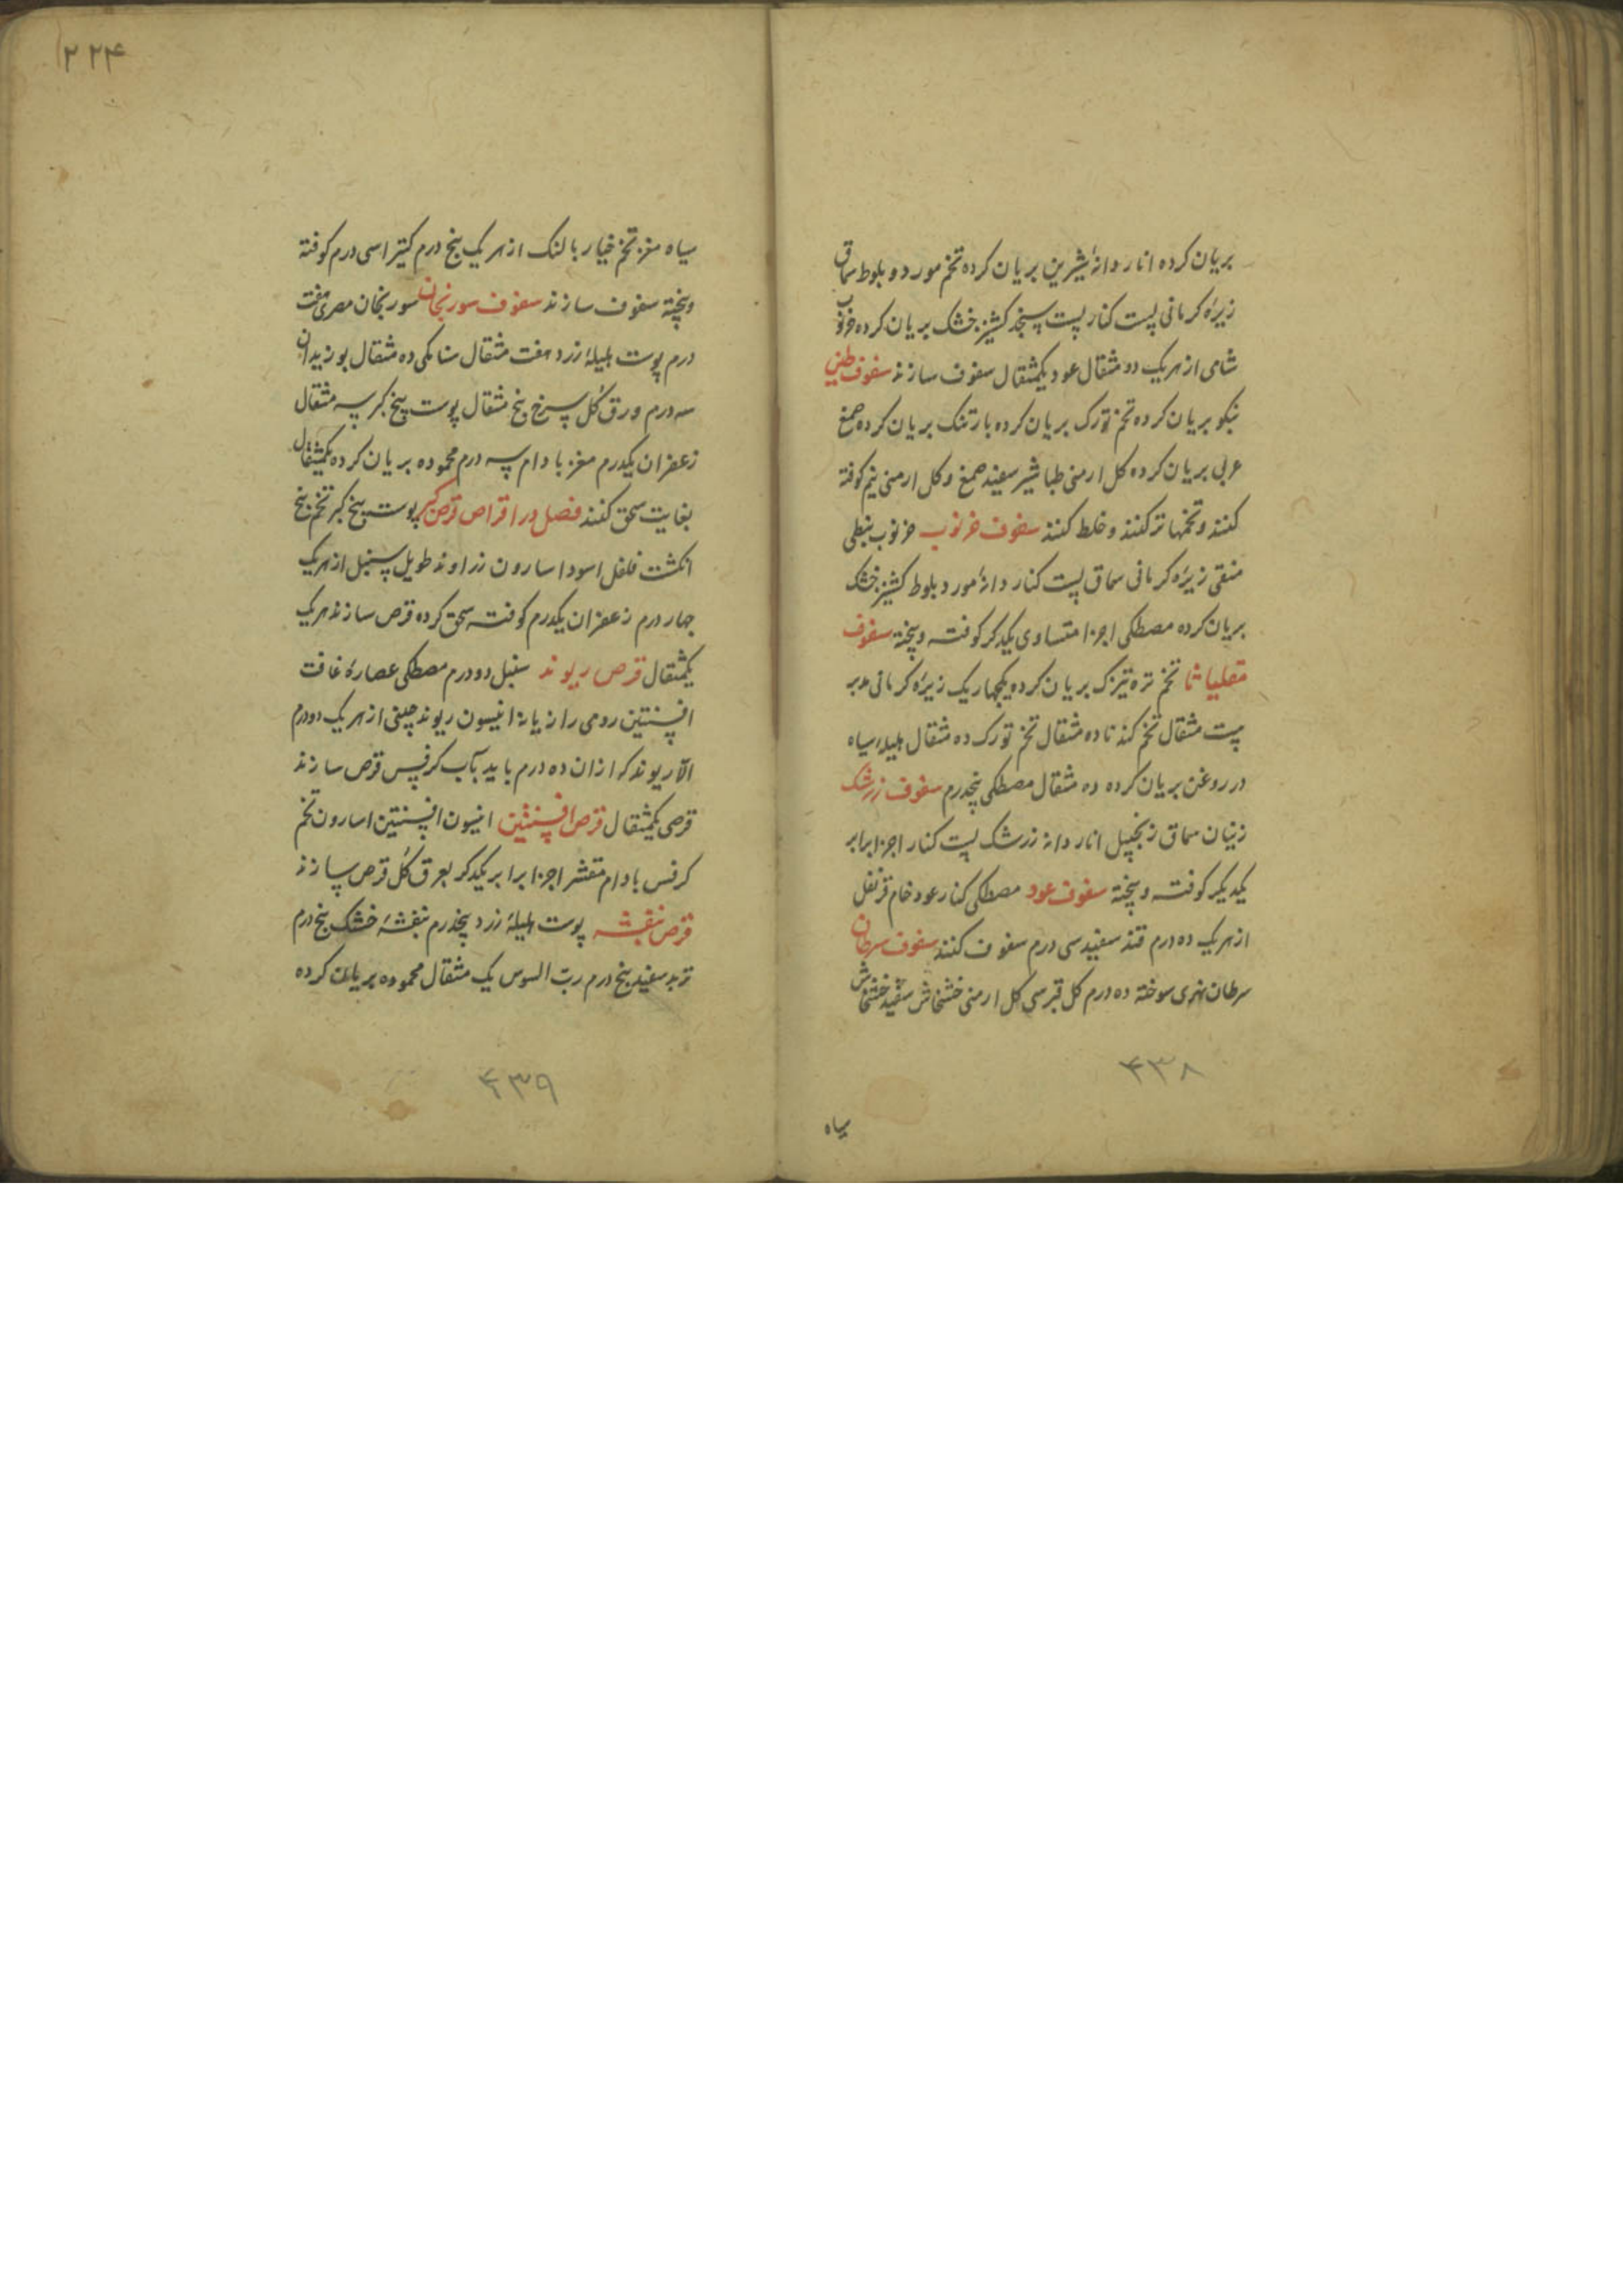 بریان کرده انار دانهٔ شیرین بریان کرده تخم مورد و بلوط سماق
زیرهٔ کرمانی پست کنار پست سنجد کشنیز خشک بریان کرده خرنوب
شامی از هریک دو مثقال عود یکمثقال سفوف سازند سفوف طین
بنکو بریان کرده تخم تورک بریان کرده بارتنک بریان کرده صمغ
عربی بریان کرده کل ارمنی طباشیر سفید صمغ و کل ارمنی نیم کوفته
کنند و تخمها تر کنند و خلط کنند سفوف خرنوب خرنوب نبطی
منقی زیرهٔ کرمانی سماق پست کنار دانهٔ مورد بلوط کشنیز خشک
بریان کرده مصطکی اجزا متساوی یکدکر کوفته و پخته سفوف
مقلیاثا تخم تره تیزک بریان کرده یکچهاریک زیرهٔ کرمانی مدبر
پست مثقال تخم کندنا ده مثقال تخم تورک ده مثقال هلیلهٔ سیاه
در روغن بریان کرده ده مثقال مصطکی پنجدرم سفوف زرشک
زنیان سماق زنجپیل انار دانه زرشک پست کنار اجزا برابر
یکدیکر کوفته و پخته سفوف عود مصطکی کنار عود خام قرنفل
از هریک ده درم قند سفید سی درم سفوف کنند سفوف سرطان
سرطان نهری سوخته ده درم کل قبرسی کل ارمنی خشخاش سفید خشخاش
۴۳۸
سیاه
۲۲۴
سیاه مغز تخم خیار بالنک از هریک پنج درم کتیرا سی درم کوفته
و پخته سفوف سازند سفوف سورنجان سورنجان مصری هفت
درم پوست هلیلهٔ زرد هفت مثقال سنا مکی ده مثقال بوزیدان
سه درم ورق کل سرخ پنج مثقال پوست بیخ کبر سه مثقال
زعفران یکدرم مغز بادام سه درم محموده بریان کرده یکمثقال
بغایت سحق کنند فصل در اقراص قرص کبر پوست بیخ کبر تخم پنج
انکشت فلفل اسود اسارون زراوند طویل سنبل از هریک
چهار درم زعفران یکدرم کوفته سحق کرده قرص سازند هریک
یکمثقال قرص ریوند سنبل دو درم مصطکی عصارهٔ غافت
افسنتین رومی رازیانه انیسون ریوند چینی از هریک دو درم
الا ریوند که از ان ده درم باید بآب کرفس قرص سازند
قرصی یکمثقال قرص افسنتین انیسون افسنتین اسارون تخم
کرفس بادام مقشر اجزا برابر یکدکر بعرق کل قرص سازند
قرص بنفشه پوست هلیلهٔ زرد پنجدرم بنفشهٔ خشک پنج درم
تربد سفید پنج درم رب السوس یک مثقال محموده بریان کرده
۴۳۹